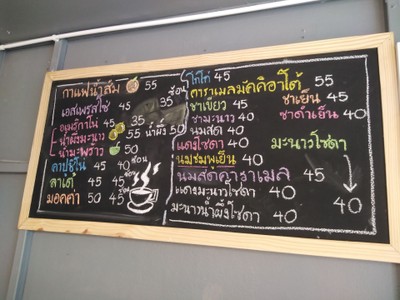 กาแฟน้ำส้ม 55
ร้อน
เอสเพรสโซ่ 45 35
อเมริกาโน่ 45 35
น้ำผึ้งมะนาว 50 น้ำผึ้ง 50
น้ำมะพร้าว 50
ร้อน
ลาเต้ 45 45
มอคค่า 50 45
โกโก้ 45
คาราเมลมัคคิอาโต้ 55
ชาเขียว 45 ชาเย็น 45
ชามะนาว 40 ชาดำเย็น 40
นมสด 40
แดงโซดา 40 มะนาวโซดา
นมชมพูเย็น 40
นมสดคาราเมล 45
แดงมะนาวโซดา 40
มะนาวน้ำผึ้งโซดา 40 40